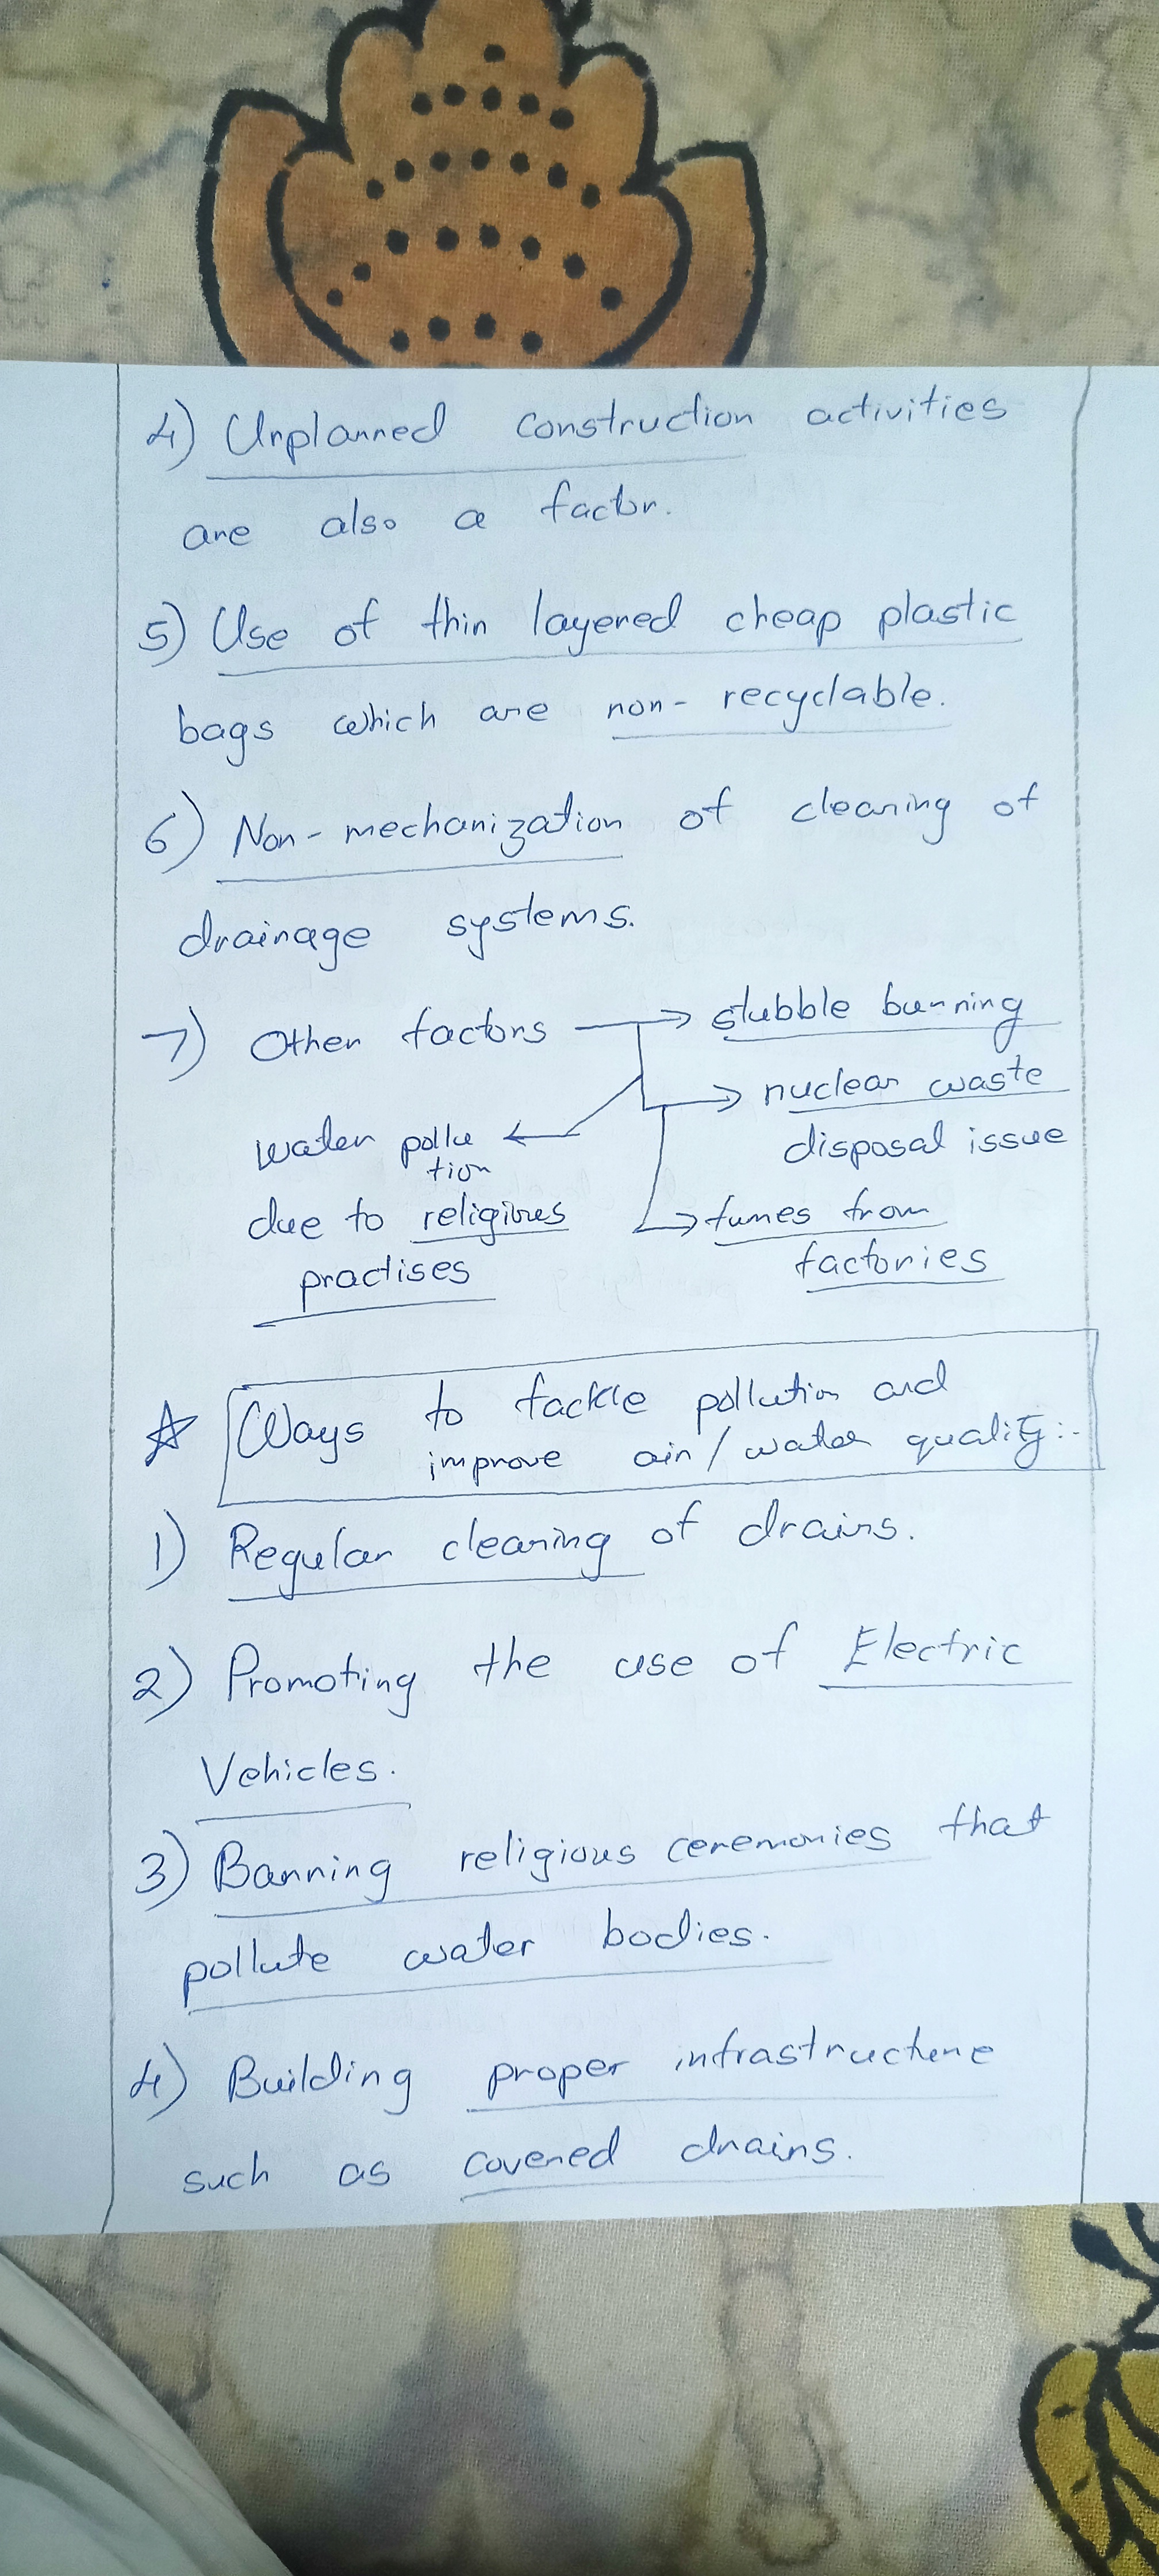 4) Unplanned construction activities
are also a factor.
5) Use of thin layered cheap plastic
bags which are non-recyclable.
6) Non-mechanization of cleaning of
drainage systems.
7) Other factors → stubble burning
→ nuclear waste
disposal issue
water pollu
tion
due to religious
practises
→ fumes from
factories
☆ Ways to tackle pollution and
improve air/water quality:-
1) Regular cleaning of drains.
2) Promoting the use of Electric
Vehicles.
3) Banning religious ceremonies that
pollute water bodies.
4) Building proper infrastructure
such as covered drains.